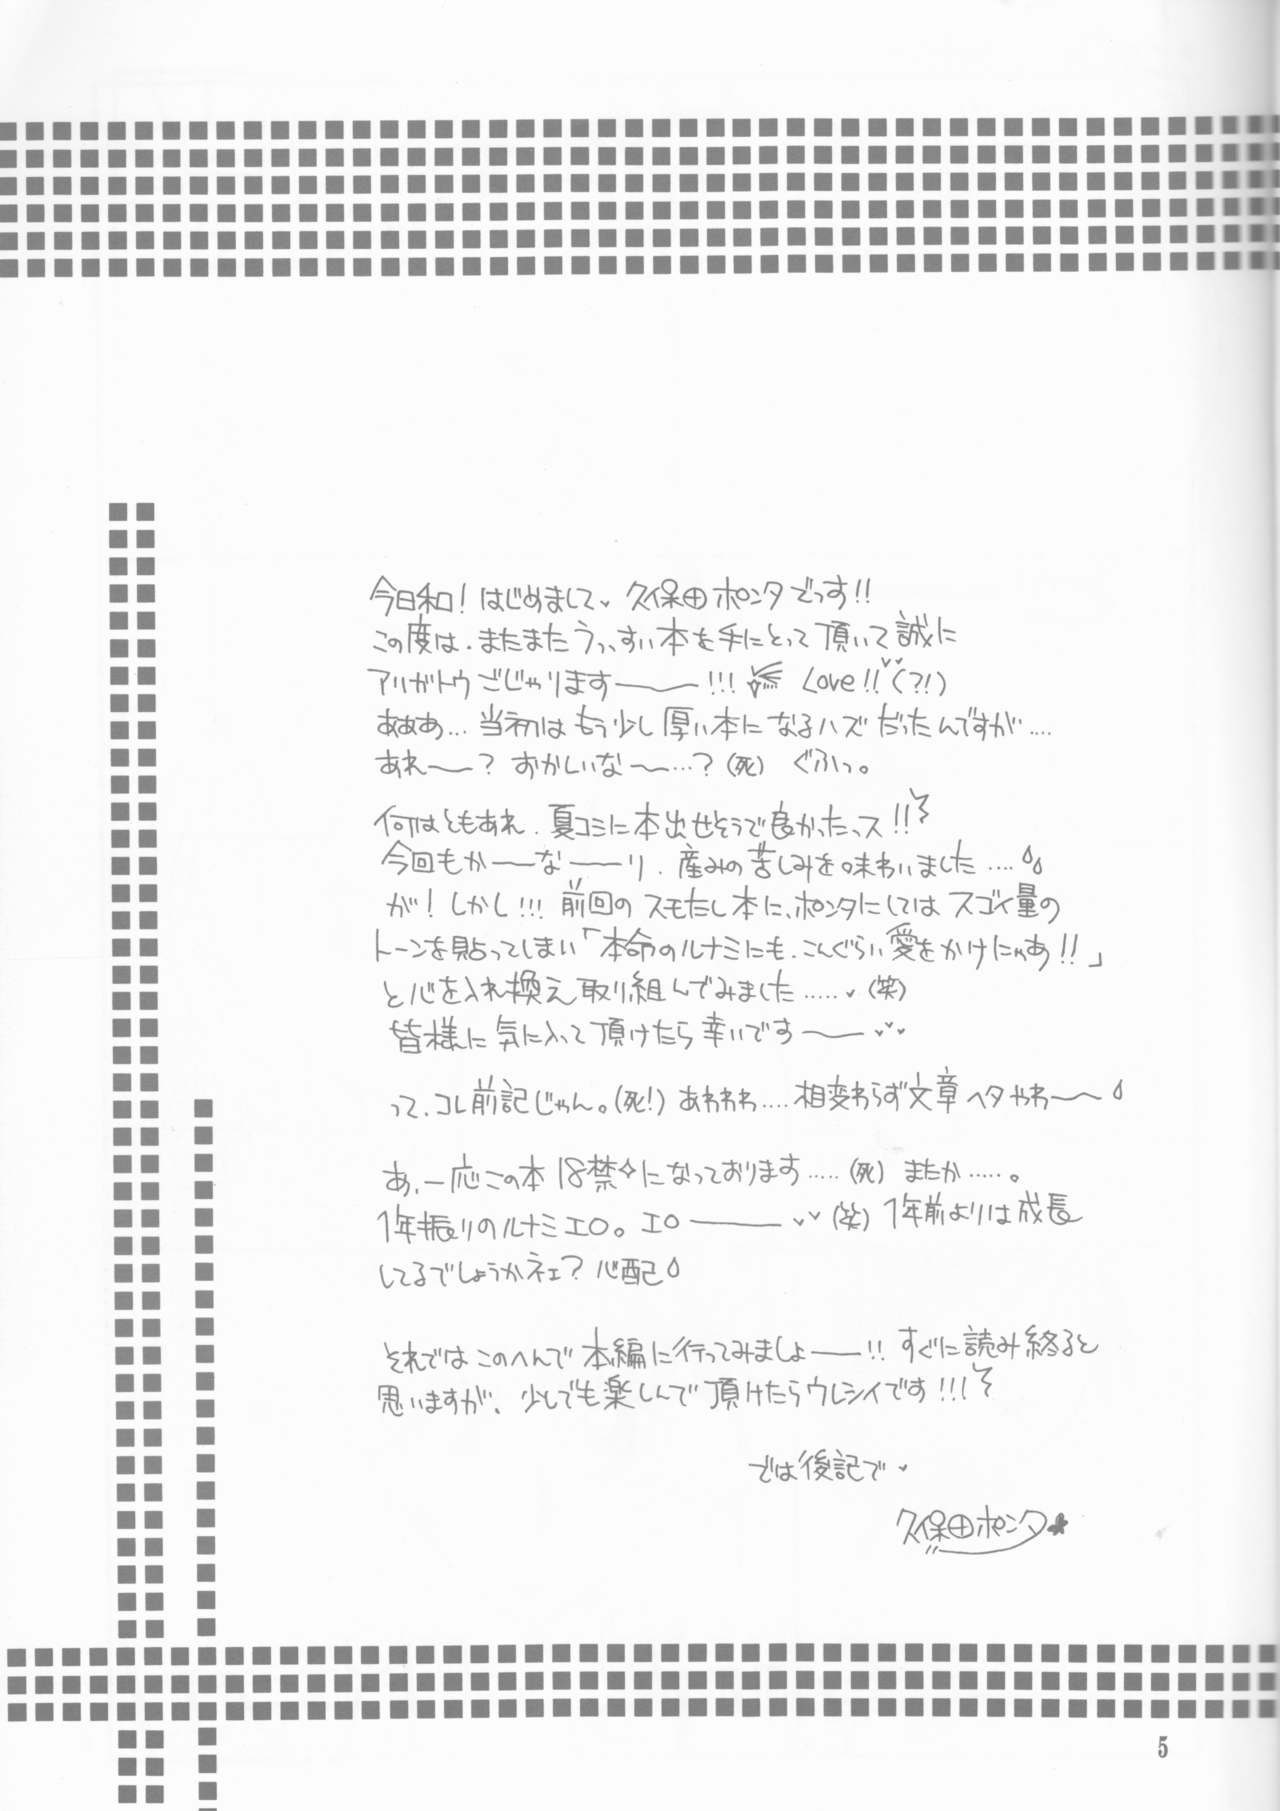 今日和！はじめまして♥ 久保田ポンタでっす!!
この度は、またまたうっっすい本を手にとって頂いて誠に
アリガトウごじゃりますーーー!!! Love!!♥♥(?!)
あああ…当初はもう少し厚い本になるハズだったんですが….
あれ〜〜？おかしいな〜…？(死) ぐふっ。
何はともあれ、夏コミに本出せそうで良かったっス!!
今回もかーーなーーーり、産みの苦しみを味わいました….
が！しかし!!! 前回のスモたし本に、ポンタにしてはスゴイ量の
トーンを貼ってしまい「本命のルナミにも、こんぐらい愛をかけにゃあ!!」
と心を入れ換え取り組んでみました…..♥(笑)
皆様に気に入って頂けたら幸いです〜〜♥♥♥
って、コレ前記じゃん。(死!) あわわわ….相変わらず文章ヘタやわ〜〜
あ、一応この本18禁✧になっております…..(死) またか…..。
1年振りのルナミエロ。エローーーー♥♥(笑) 1年前よりは成長
してるでしょうかネェ？心配
それではこのへんで本編に行ってみましょーー!! すぐに読み終ると
思いますが、少しでも楽しんで頂けたらウレシイです!!!
では後記で♥
久保田ポンタ
5